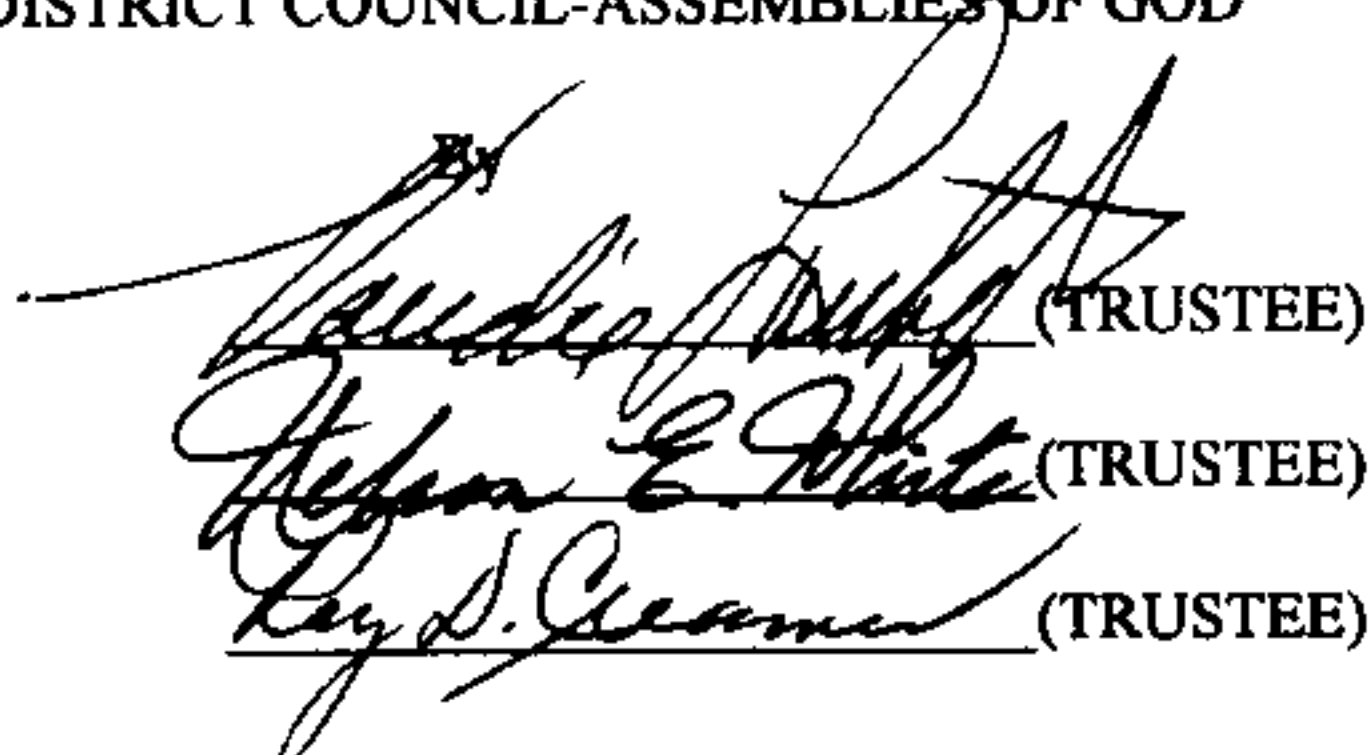 DISTRICT COUNCIL-ASSEMBLIES OF GOD
By
(TRUSTEE)
Nelson E. White (TRUSTEE)
Roy D. Creamer (TRUSTEE)